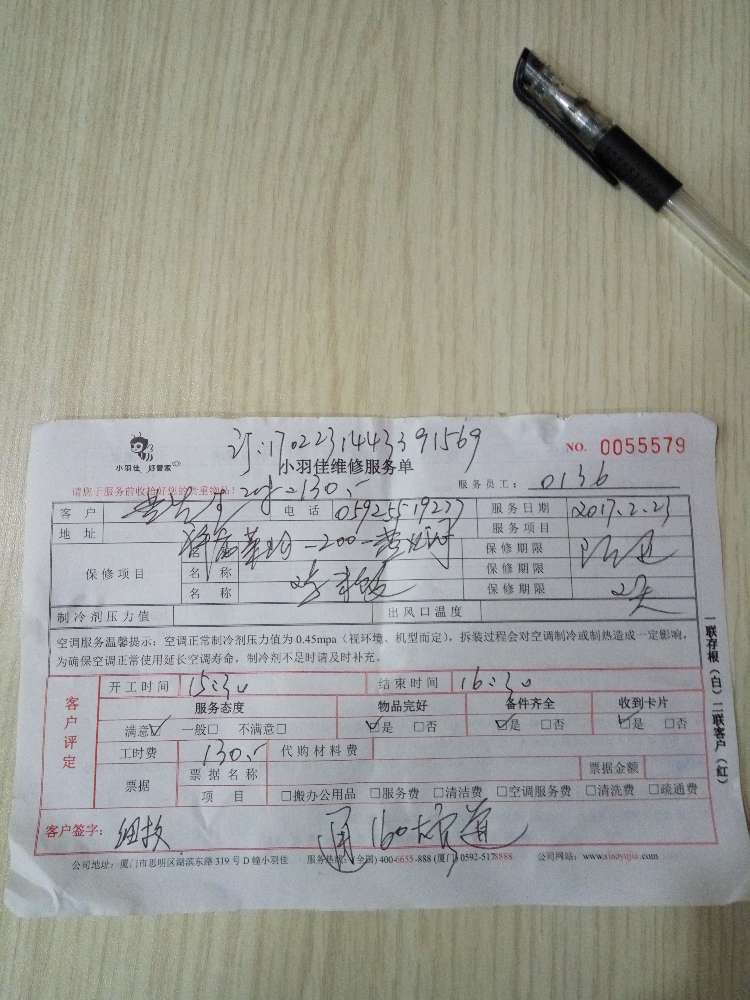 小羽佳 好管家
订:1702231443391569
NO. 0055579
小羽佳维修服务单
请您于服务前收捡好您的贵重物品!
=130.-
服务员工: 0136
客户 电话 服务日期 2017.2.23
地址 服务项目
保修项目 名称 保修期限
名称 保修期限
名称 保修期限 2天
制冷剂压力值 出风口温度
空调服务温馨提示:空调正常制冷剂压力值为0.45mpa(视环境、机型而定),拆装过程会对空调制冷或制热造成一定影响,
为确保空调正常使用延长空调寿命,制冷剂不足时请及时补充。
客户评定
开工时间 15:30 结束时间 16:30
服务态度 物品完好 备件齐全 收到卡片
满意☑ 一般□ 不满意□ ☑是 □否 ☑是 □否 ☑是 □否
工时费 130.- 代购材料费
票据 票据名称 票据金额
项目 □搬办公用品 □服务费 □清洁费 □空调服务费 □清洗费 □疏通费
客户签字:
通160
公司地址:厦门市思明区湖滨东路319号D幢小羽佳 服务热线:(全国)400-6655-888 (厦门)0592-5178888 公司网站:www.xiaoyujia.com
一联存根(白)二联客户(红)